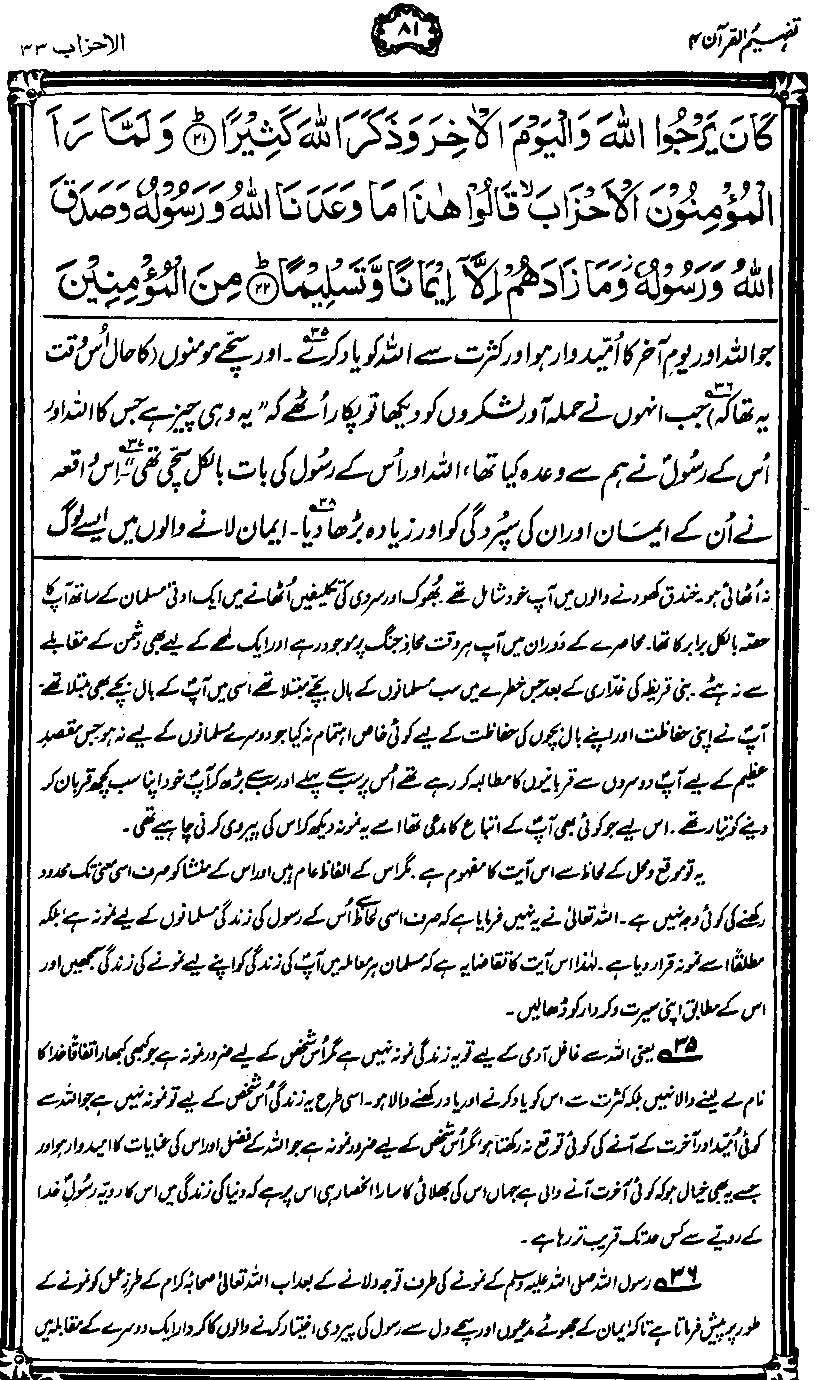 تفہیم القرآن ۴
۸۱
الاحزاب ۳۳
كَانَ يَرْجُوا اللّٰهَ وَالْيَوْمَ الْاٰخِرَ وَذَكَرَ اللّٰهَ كَثِيْرًا ۞۲۱ وَلَمَّا رَاَ
الْمُؤْمِنُوْنَ الْاَحْزَابَ ۙ قَالُوْا هٰذَا مَا وَعَدَنَا اللّٰهُ وَرَسُوْلُهٗ وَصَدَقَ
اللّٰهُ وَرَسُوْلُهٗ ۡ وَمَا زَادَهُمْ اِلَّاۤ اِيْمَانًا وَّتَسْلِيْمًا ۞۲۲ مِنَ الْمُؤْمِنِيْنَ
جو اللہ اور یومِ آخر کا اُمّیدوار ہو اور کثرت سے اللہ کو یاد کرے۳۵۔ اور سچّے مومنوں (کا حال اُس وقت
یہ تھا کہ)۳۶ جب انہوں نے حملہ آور لشکروں کو دیکھا تو پکار اُٹھے کہ ”یہ وہی چیز ہے جس کا اللہ اور
اُس کے رسُولؐ نے ہم سے وعدہ کیا تھا، اللہ اور اُس کے رسُول کی بات بالکل سچّی تھی“۳۷۔ اِس واقعہ
نے اُن کے ایمان اور ان کی سپُردگی کو اور زیادہ بڑھا دیا۳۸۔ ایمان لانے والوں میں ایسے لوگ
نہ اُٹھائی ہو۔ خندق کھودنے والوں میں آپ خود شامل تھے۔ بھُوک اور سردی کی تکلیفیں اُٹھانے میں ایک ادنیٰ مسلمان کے ساتھ آپ کا
حصّہ بالکل برابر کا تھا۔ محاصرے کے دَوران میں آپ ہر وقت محاذِ جنگ پر موجود رہے اور ایک لمحے کے لیے بھی دشمن کے مقابلے
سے نہ ہٹے۔ بنی قریظہ کی غدّاری کے بعد جس خطرے میں سب مسلمانوں کے بال بچّے مبتلا تھے اُسی میں آپؐ کے بال بچّے بھی مبتلا تھے۔
آپؐ نے اپنی حفاظت اور اپنے بال بچّوں کی حفاظت کے لیے کوئی خاص اہتمام نہ کیا جو دوسرے مسلمانوں کے لیے نہ ہو۔ جس مقصدِ
عظیم کے لیے آپؐ دوسروں سے قربانیوں کا مطالبہ کر رہے تھے اُس پر سب سے پہلے اور سب سے بڑھ کر آپؐ خود اپنا سب کچھ قربان کر
دینے کو تیار تھے۔ اس لیے جو کوئی بھی آپؐ کے اتباع کا مدعی تھا اسے یہ نمونہ دیکھ کر اس کی پیروی کرنی چاہیے تھی۔
یہ تو موقع و محل کے لحاظ سے اس آیت کا مفہوم ہے۔ مگر اس کے الفاظ عام ہیں اور اس کے منشا کو صرف اسی معنی تک محدود
رکھنے کی کوئی وجہ نہیں ہے۔ اللہ تعالیٰ نے یہ نہیں فرمایا ہے کہ صرف اسی لحاظ سے اُس کے رسول کی زندگی مسلمانوں کے لیے نمونہ ہے، بلکہ
مطلقًا اسے نمونہ قرار دیا ہے۔ لہٰذا اس آیت کا تقاضا یہ ہے کہ مسلمان ہر معاملہ میں آپؐ کی زندگی کو اپنے لیے نمونے کی زندگی سمجھیں اور
اس کے مطابق اپنی سیرت و کردار کو ڈھالیں۔
۳۵ یعنی اللہ سے غافل آدمی کے لیے تو یہ زندگی نمونہ نہیں ہے مگر اُس شخص کے لیے ضرور نمونہ ہے جو کبھی کبھار اتفاقًا خدا کا
نام لے لینے والا نہیں بلکہ کثرت سے اس کو یاد کرنے اور یاد رکھنے والا ہو۔ اسی طرح یہ زندگی اُس شخص کے لیے تو نمونہ نہیں ہے جو اللہ سے
کوئی اُمّید اور آخرت کے آنے کی کوئی توقع نہ رکھتا ہو، مگر اُس شخص کے لیے ضرور نمونہ ہے جو اللہ کے فضل اور اس کی عنایات کا امیدوار ہو اور
جسے یہ بھی خیال ہو کہ کوئی آخرت آنے والی ہے جہاں اس کی بھلائی کا سارا انحصار ہی اس پر ہے کہ دنیا کی زندگی میں اس کا رویّہ رسُولِؐ خدا
کے رویّے سے کس حد تک قریب تر رہا ہے۔
۳۶ رسول اللہ صلی اللہ علیہ وسلم کے نمونے کی طرف توجہ دلانے کے بعد اب اللہ تعالیٰ صحابۂ کرام کے طرزِ عمل کو نمونے کے
طور پر پیش فرماتا ہے تاکہ ایمان کے جھوٹے مدعیوں اور سچے دل سے رسول کی پیروی اختیار کرنے والوں کا کردار ایک دوسرے کے مقابلہ میں